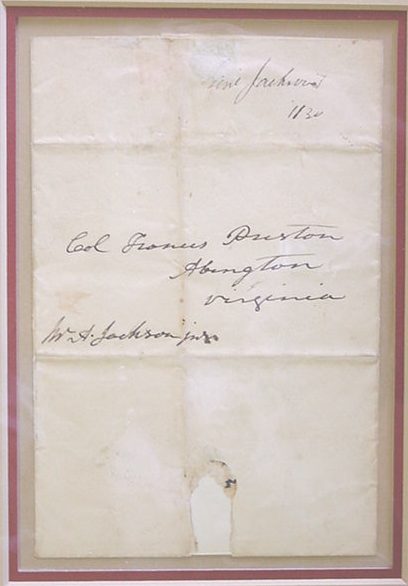 Jackson
1830
Col Francis Preston
Abington
Virginia
Mr A. Jackson jnr